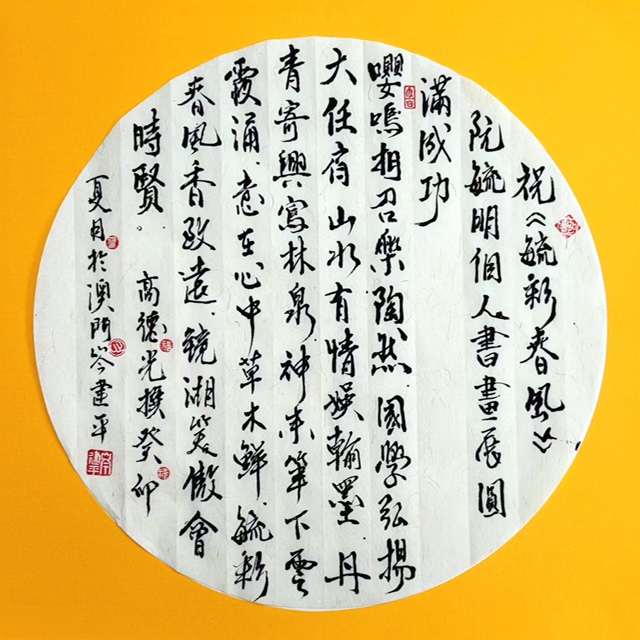 祝《毓彩春風》
阮毓明個人書畫展圓
滿成功
嚶鳴相召樂陶然國學弘揚
大任肩山水有情娛翰墨丹
青寄興寫林泉神來筆下雲
霞涌意在心中草木鮮毓彩
春風香致遠鏡湖笑傲會
時賢。高德光撰癸卯
夏月於澳門岑建平